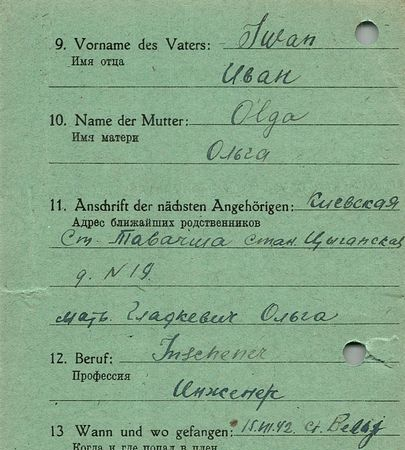 9. Vorname des Vaters: Iwan
Имя отца
Иван
10. Name der Mutter: Olga
Имя матери
Ольга
11. Anschrift der nächsten Angehörigen: Киевская
Адрес ближайших родственников
Ст. стан. Цыганская
д. N 19.
мать. Гладкевич Ольга
12. Beruf: Inschener
Профессия
Инженер
13 Wann und wo gefangen: 15.VII.42. ст.
Когда и где попал в плен